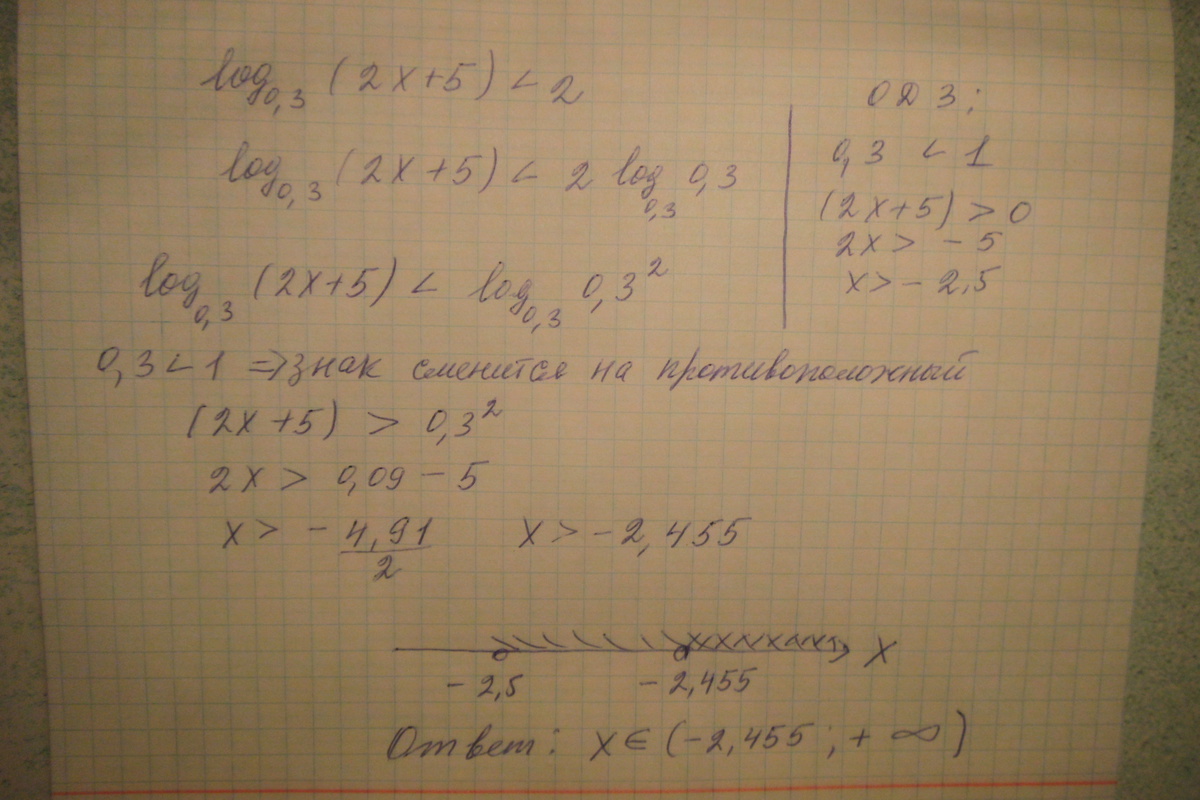 log₀,₃ (2x+5) < 2
log₀,₃ (2x+5) < 2 log₀,₃ 0,3
log₀,₃ (2x+5) < log₀,₃ 0,3²
ОДЗ;
0,3 < 1
(2x+5) > 0
2x > -5
x > -2,5
0,3 < 1 => знак сменится на противоположный
(2x+5) > 0,3²
2x > 0,09 - 5
x > - 4,91/2    x > -2,455
x
-2,5    -2,455
Ответ: x ∈ (-2,455; +∞)